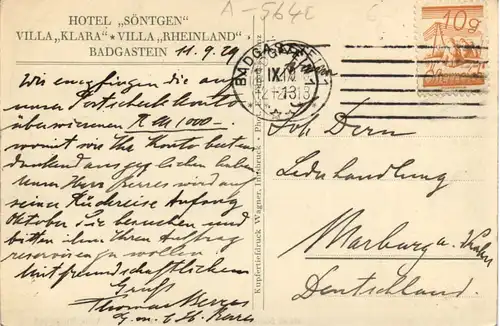 HOTEL „SÖNTGEN"
VILLA „KLARA" * VILLA „RHEINLAND"
BADGASTEIN 11.9.29
A-564c
Wir empfingen die auf
unser Postscheckkonto
überwiesenen R.M. 1000.–
womit wir Ihr Konto bestens
dankend ausgeglichen haben
Unser Herr wird auf
seiner Rückreise Anfang
Oktober Sie besuchen und
bitten ihm Ihren Auftrag
reservieren zu wollen.
Mit freundschaftlichem
Gruß
Thomas
Kupfertiefdruck Wagner, Innsbruck * Phot.
BADGASTEIN 1
10g
Joh Dern
Lederhandlung
Marburg a. Lahn
Deutschland.